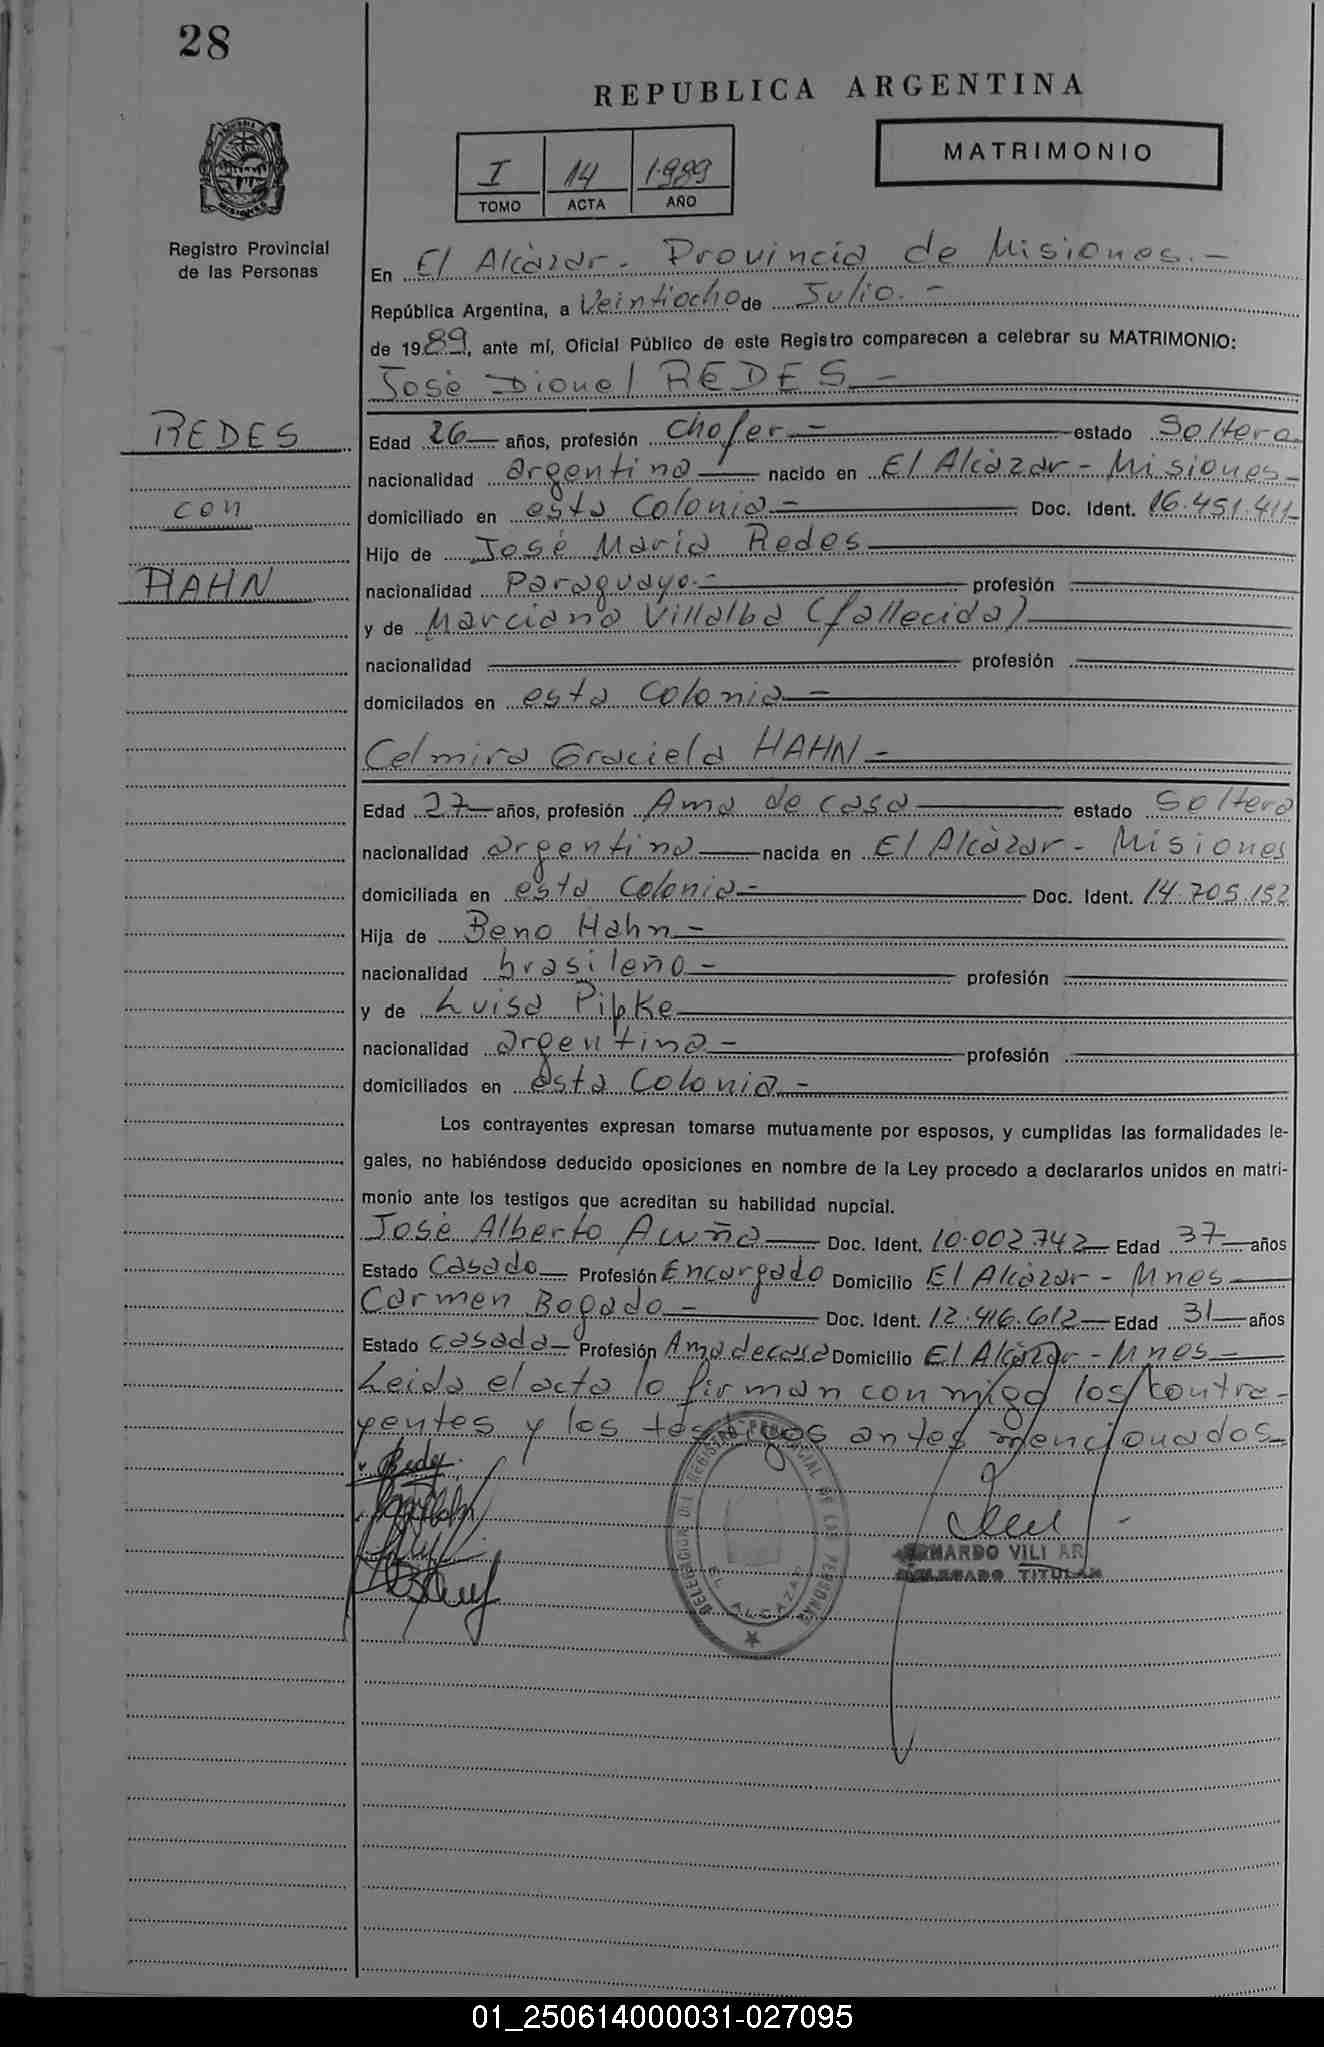 28
REPUBLICA ARGENTINA
MATRIMONIO
I 14 1.989
TOMO ACTA AÑO
Registro Provincial
de las Personas
En El Alcàzar - Provincia de Misiones.-
República Argentina, a Veintiocho de Julio.-
de 1989, ante mí, Oficial Público de este Registro comparecen a celebrar su MATRIMONIO:
José Dionel REDES -
REDES
con
HAHN
Edad 26 años, profesión chofer - estado Soltero
nacionalidad argentina nacido en El Alcàzar - Misiones -
domiciliado en esta Colonia - Doc. Ident. 16.451.411
Hijo de José María Redes
nacionalidad Paraguayo.- profesión
y de Marciana Villalba (fallecida)
nacionalidad profesión
domicilados en esta Colonia -
Celmira Graciela HAHN -
Edad 27 años, profesión Ama de casa estado Soltera
nacionalidad argentina nacida en El Alcàzar - Misiones
domiciliada en esta Colonia - Doc. Ident. 14.705.152
Hija de Beno Hahn -
nacionalidad brasileño - profesión
y de Luisa Pipke
nacionalidad argentina - profesión
domiciliados en esta Colonia -
Los contrayentes expresan tomarse mutuamente por esposos, y cumplidas las formalidades le-
gales, no habiéndose deducido oposiciones en nombre de la Ley procedo a declararlos unidos en matri-
monio ante los testigos que acreditan su habilidad nupcial.
José Alberto Acuña Doc. Ident. 10.002.742 Edad 37 años
Estado Casado Profesión Encargado Domicilio El Alcàzar - Mnes
Carmen Bogado - Doc. Ident. 12.416.612 Edad 31 años
Estado casada Profesión Ama de casa Domicilio El Alcàzar - Mnes
Leida el acta lo firman conmigo los contra-
yentes y los testigos antes mencionados
DELEGACION DEL REGISTRO PROVINCIAL DE LAS PERSONAS
EL ALCAZAR
DELEGADO TITULAR
01_250614000031-027095